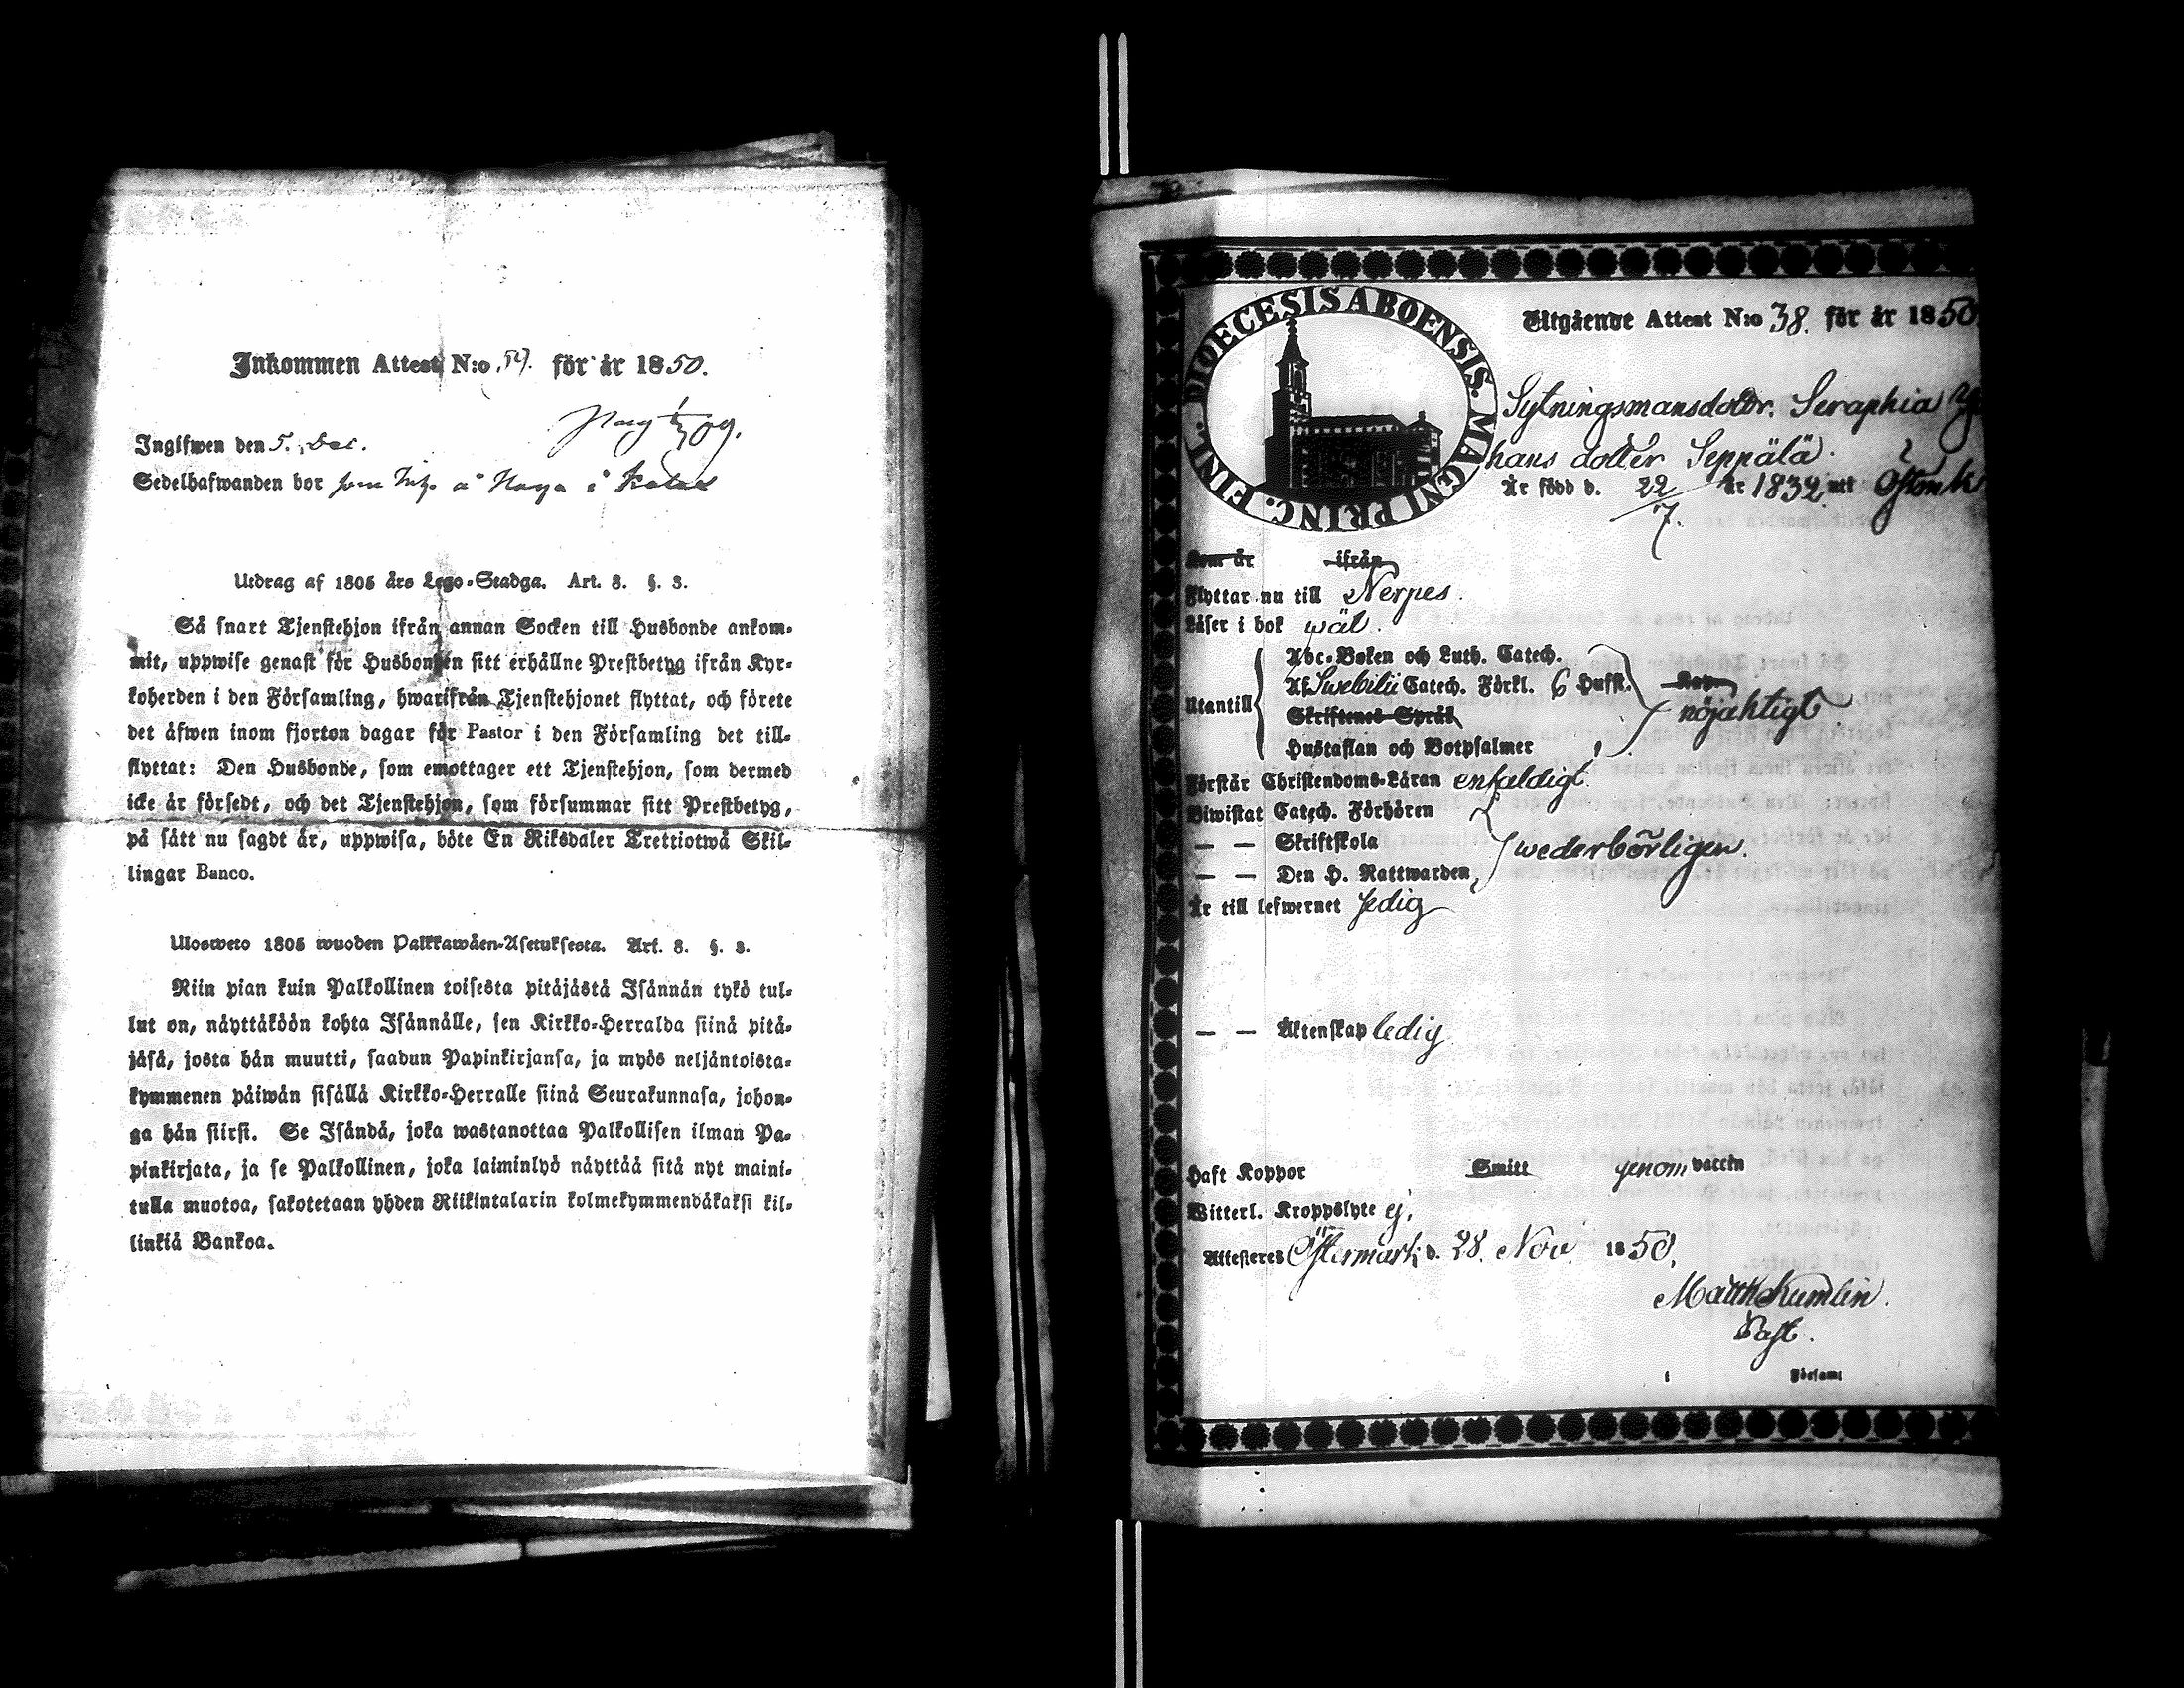 Inkommen Attest N:o för år 1850.
Inglfwen den 5. Dec.
Sedelhafwanden bor som å Haga i
Utdrag af 1805 års Lego-Stadga. Art. 8. §. 3.
Så snart Tjenstehjon ifrån annan Socken till Husbonde ankom-
mit, uppwise genast för Husbonden sitt erhållne Prestbetyg ifrån Kyr-
koherden i den Församling, hwarifrån Tjenstehjonet flyttat, och förete
det äfwen inom fjorton dagar för Pastor i den Församling det till-
flyttat: Den Husbonde, som emottager ett Tjenstehjon, som dermed
icke är försedt, och det Tjenstehjon, som försummar sitt Prestbetyg,
på sätt nu sagdt är, uppwisa, böte En Riksdaler Trettiotwå Skil-
lingar Banco.
Ulosweto 1805 wuoden Palkkawäen-Asetuksesta. Art. 8. §. 3.
Niin pian kuin Palkollinen toisesta pitäjästä Isännän tykö tul-
lut on, näyttäköön kohta Isännälle, sen Kirkko-Herralda siinä pitä-
jäsä, josta hän muutti, saadun Papinkirjansa, ja myös neljäntoista-
kymmenen päiwän sisällä Kirkko-Herralle siinä Seurakunnasa, johon-
ga hän siirsi. Se Isändä, joka wastanottaa Palkollisen ilman Pa-
pinkirjata, ja se Palkollinen, joka laiminlyö näyttää sitä nyt maini-
tulla muotoa, sakotetaan yhden Riikintalarin kolmekymmendäkaksi kil-
linkiä Bankoa.
DIOECESIS ABOENSIS. MAGNI PRINC. FINL.
Utgående Attest N:o 38. för år 1850.
Sytningsmansdottr. Seraphia
hans dotter Seppälä.
Är född d. 22/7. år 1832 uti
Kom år ifrån
Flyttar nu till Nerpes.
Läser i bok wäl.
Abc-Boken och Luth. Catech.
Af Swebilii Catech. Förkl. 6 Hufst.
Utantill
Skriftenes Språk
nöjaktigt
Hustaflan och Botpsalmer
Förstår Christendoms-Läran enfaldigt.
Biwistat Catech. Förhören
— — Skriftskola
wederbörligen.
— — Den H. Nattwarden
Är till lefwernet ledig
— — Äktenskap ledig
Haft Koppor Smitt genom vaccin
Witterl. Kroppslyte ej.
Attesteres Östermark d. 28. Nov. 1850.
Matth Kumlin.
Past.
i Församl